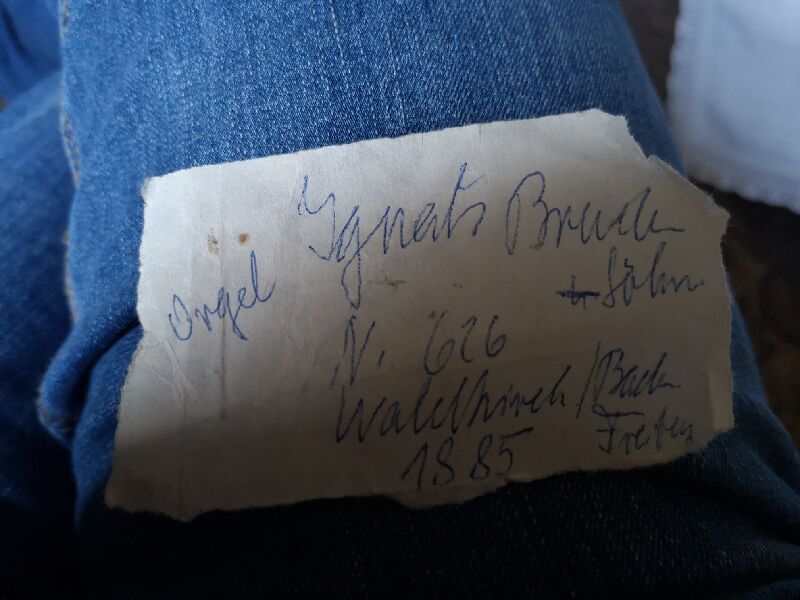 Orgel Ignats Bruder
+ Söhn
N. 626
Waldkirch / Baden
Freiburg
1885